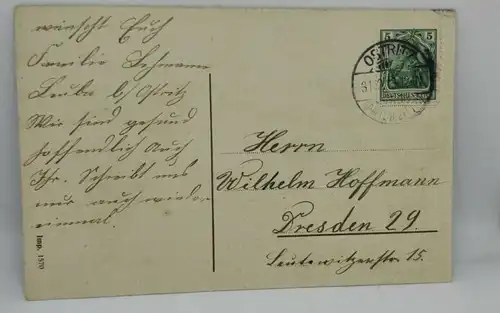 wünscht Euch
Familie Lehmann
Leuba b/Ostritz
Wir sind gesund
hoffendlich auch
Ihr. Schreibt uns
nur auch wieder
einmal.
Imp. 1570
5 5
OSTRITZ
Herrn
Wilhelm Hoffmann
Dresden 29.
Leutewitzerstr. 15.